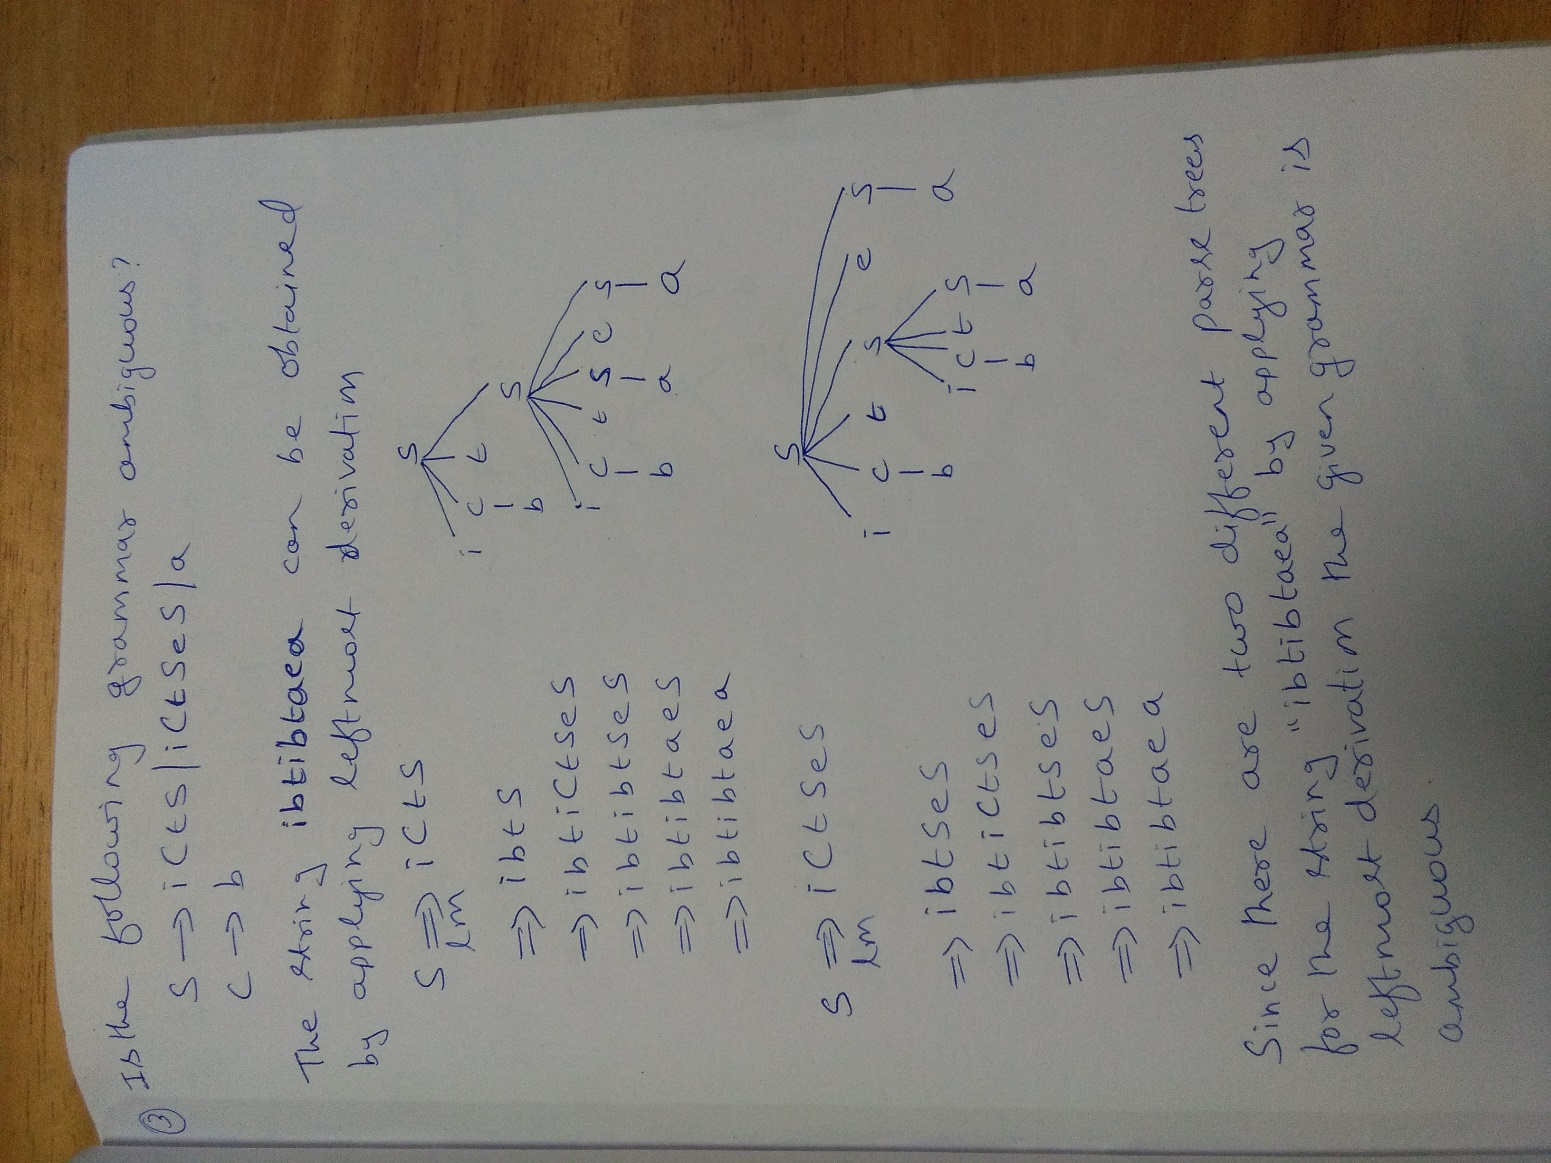 ③ Is the following grammar ambiguous?
S → iCtS | iCtSeS | a
C → b
The string ibtibtaea can be obtained
by applying leftmost derivation
S ⇒ iCtS
lm
⇒ ibtS
⇒ ibtiCtSeS
⇒ ibtibtSeS
⇒ ibtibtaeS
⇒ ibtibtaea
S
i C t S
b
i C t S e S
b a a
S ⇒ iCtSeS
lm
⇒ ibtSeS
⇒ ibtiCtSeS
⇒ ibtibtSeS
⇒ ibtibtaeS
⇒ ibtibtaea
S
i C t S e S
b a
i C t S
b a
Since there are two different parse trees
for the string "ibtibtaea" by applying
leftmost derivation the given grammar is
ambiguous.